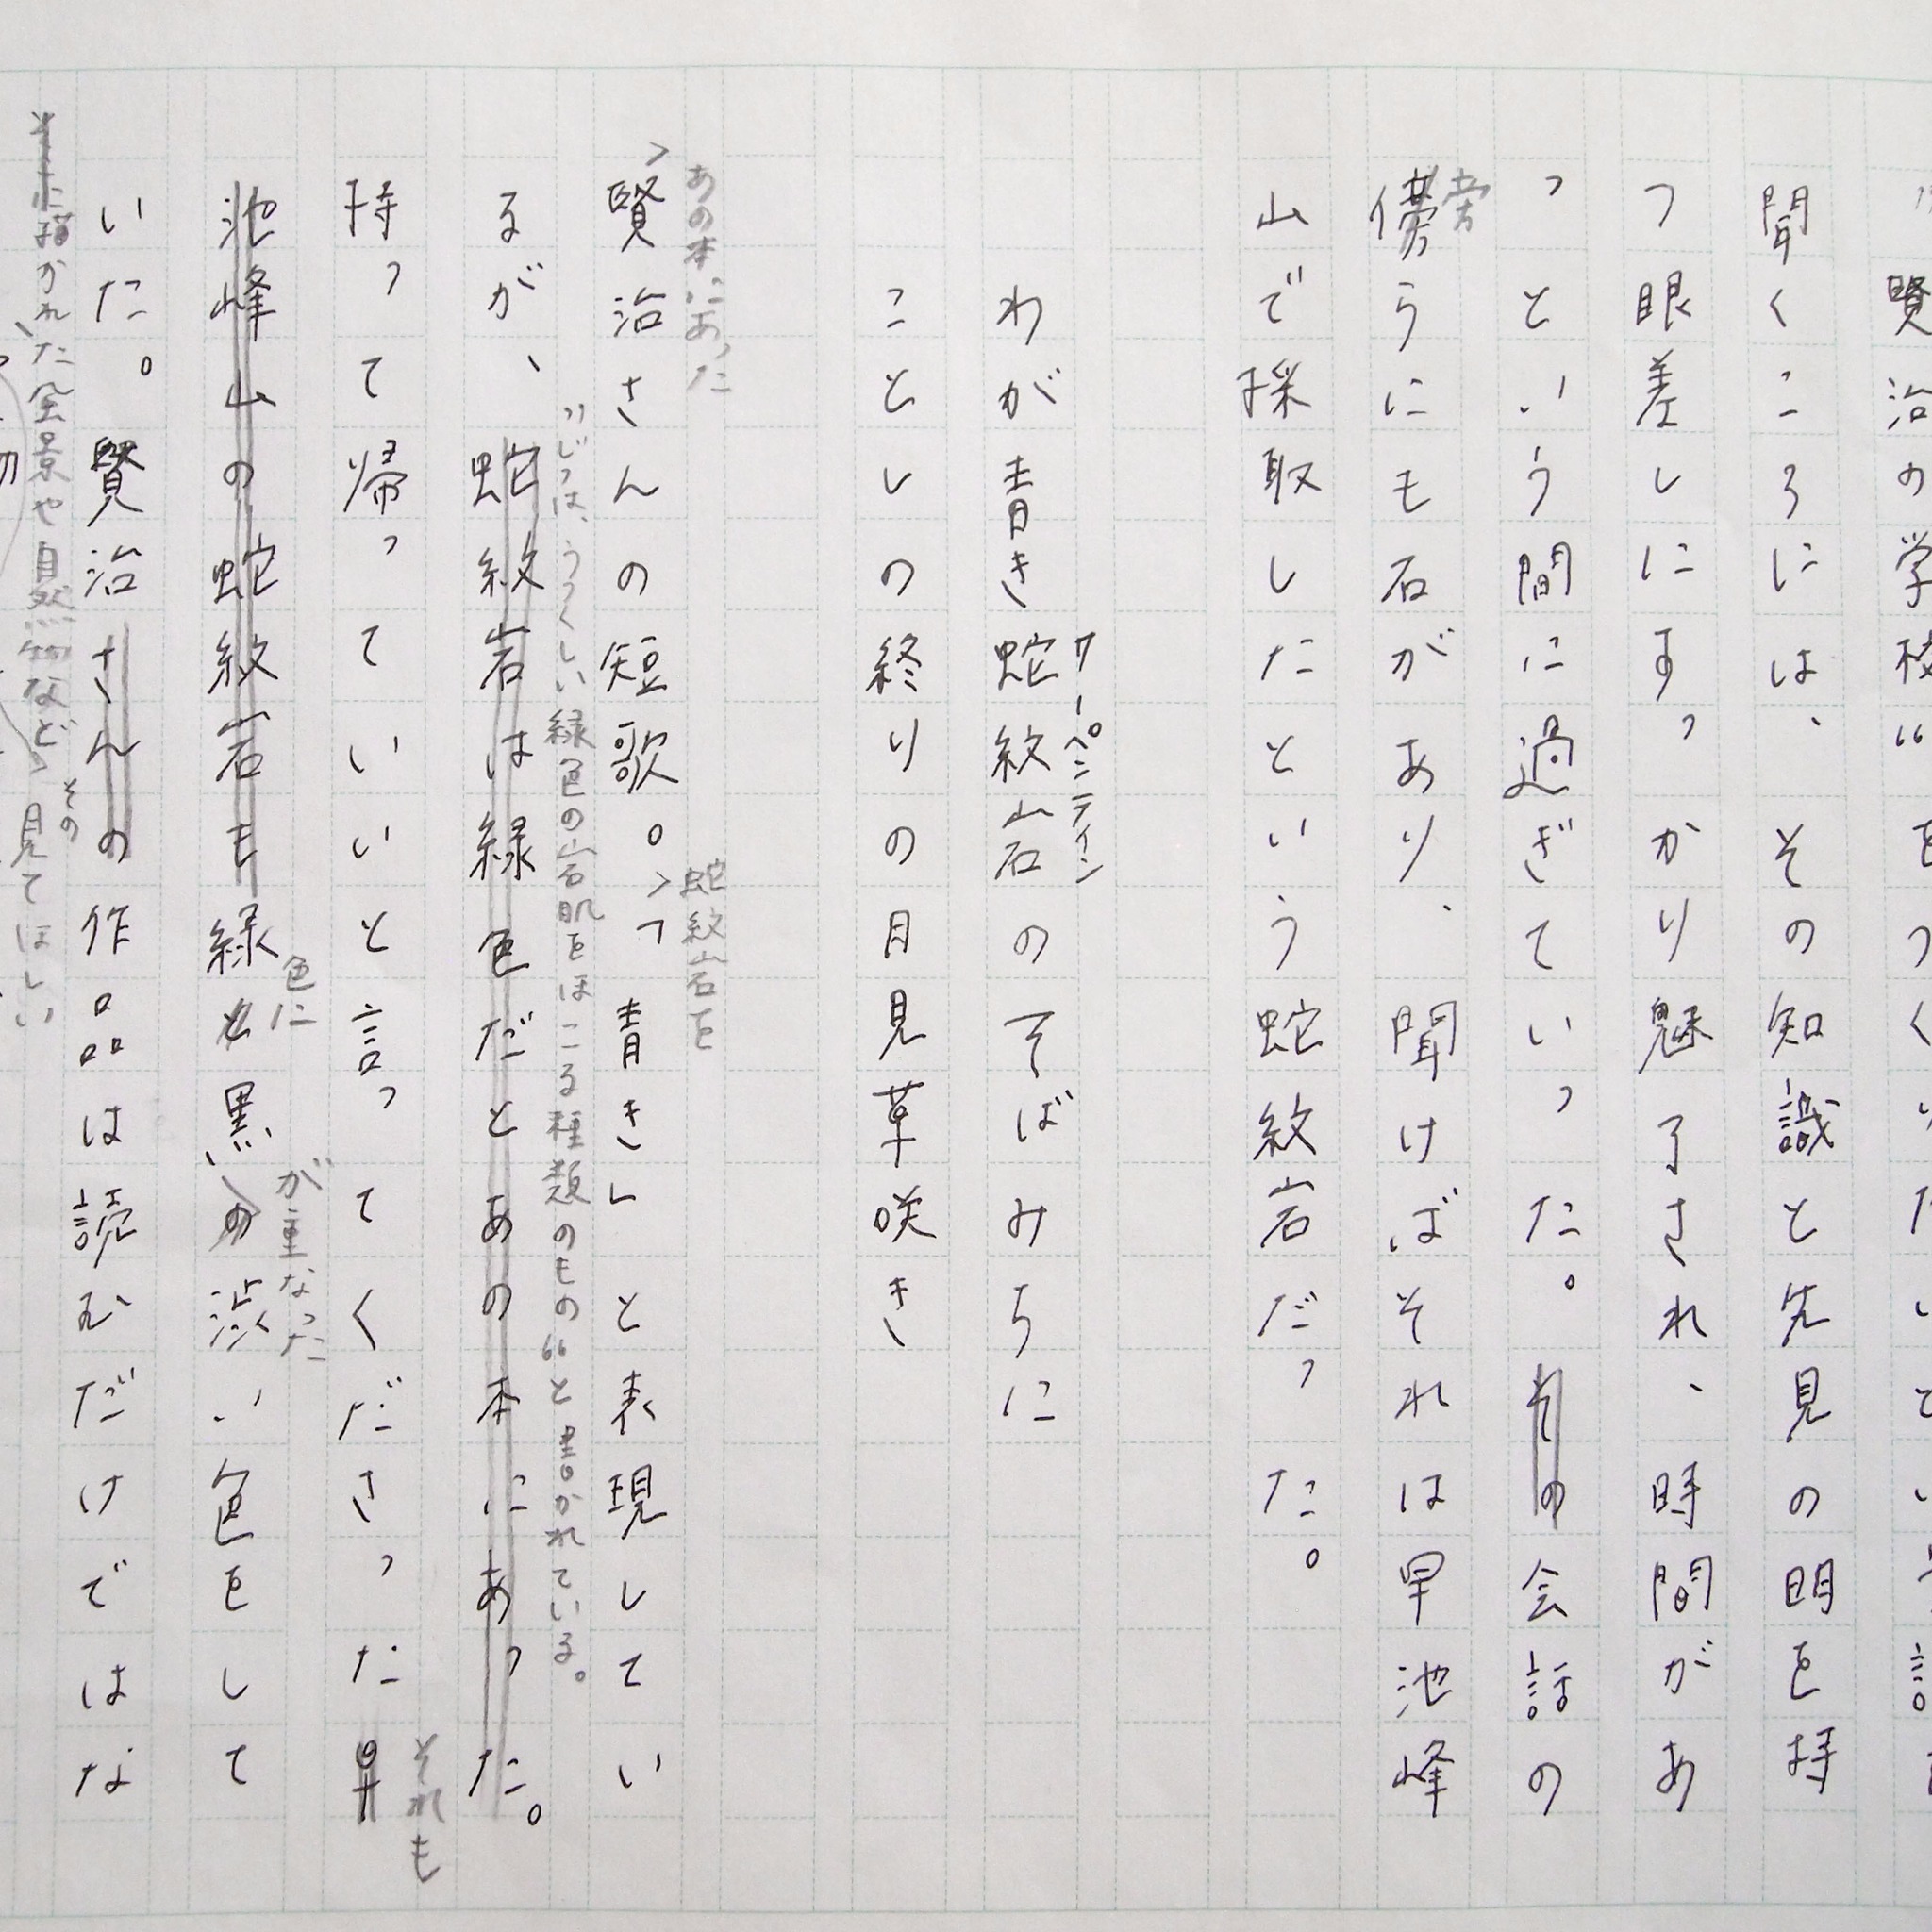 賢治の学校〟をつくりたいと
聞くころには、その知識と先見の明を持
つ眼差しにすっかり魅了され、時間があ
っという間に過ぎていった。その会話の
傍
傍らにも石があり、聞けばそれは早池峰
山で採取したという蛇紋岩だった。
サーペンティン
わが青き蛇紋岩のそばみちに
ことしの終りの月見草咲き
あの本にあった
蛇紋岩を
賢治さんの短歌。「青き」と表現してい
〝じつは、うつくしい緑色の岩肌をほこる種類のもの〟と書かれている。
るが、蛇紋岩は緑色だとあの本にあった。
それも
持って帰っていいと言ってくださった早
色に
が重なった
池峰山の蛇紋岩も緑と黒の渋い色をして
いた。賢治さんの作品は読むだけではな
その
描かれた全景や自然物など、見てほしい